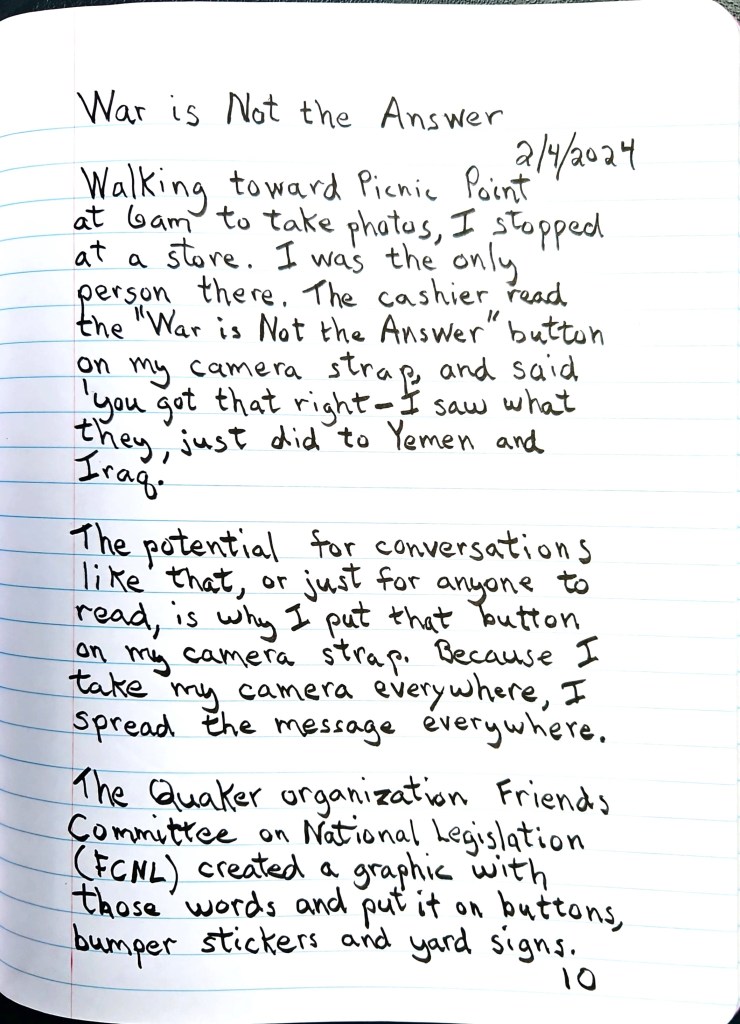 War is Not the Answer
2/4/2024
Walking toward Picnic Point
at 6am to take photos, I stopped
at a store. I was the only
person there. The cashier read
the "War is Not the Answer" button
on my camera strap, and said
'you got that right-I saw what
they, just did to Yemen and
Iraq.'
The potential for conversations
like that, or just for anyone to
read, is why I put that button
on my camera strap. Because I
take my camera everywhere, I
spread the message everywhere.
The Quaker organization Friends
Committee on National Legislation
(FCNL) created a graphic with
those words and put it on buttons,
bumper stickers and yard signs.
10